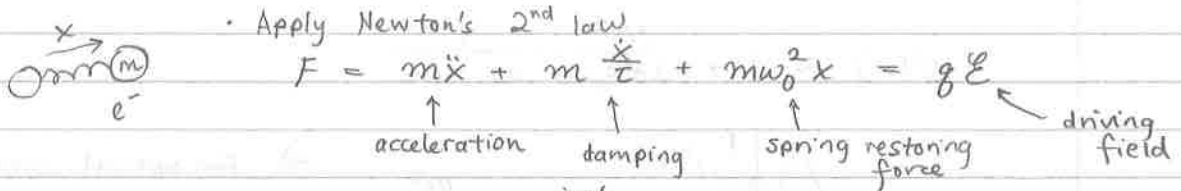 · Apply Newton's 2nd law
x
m
e⁻
F = mẍ + m ẋ/τ + mω₀²x = qℰ
acceleration
damping
spring restoring force
driving field